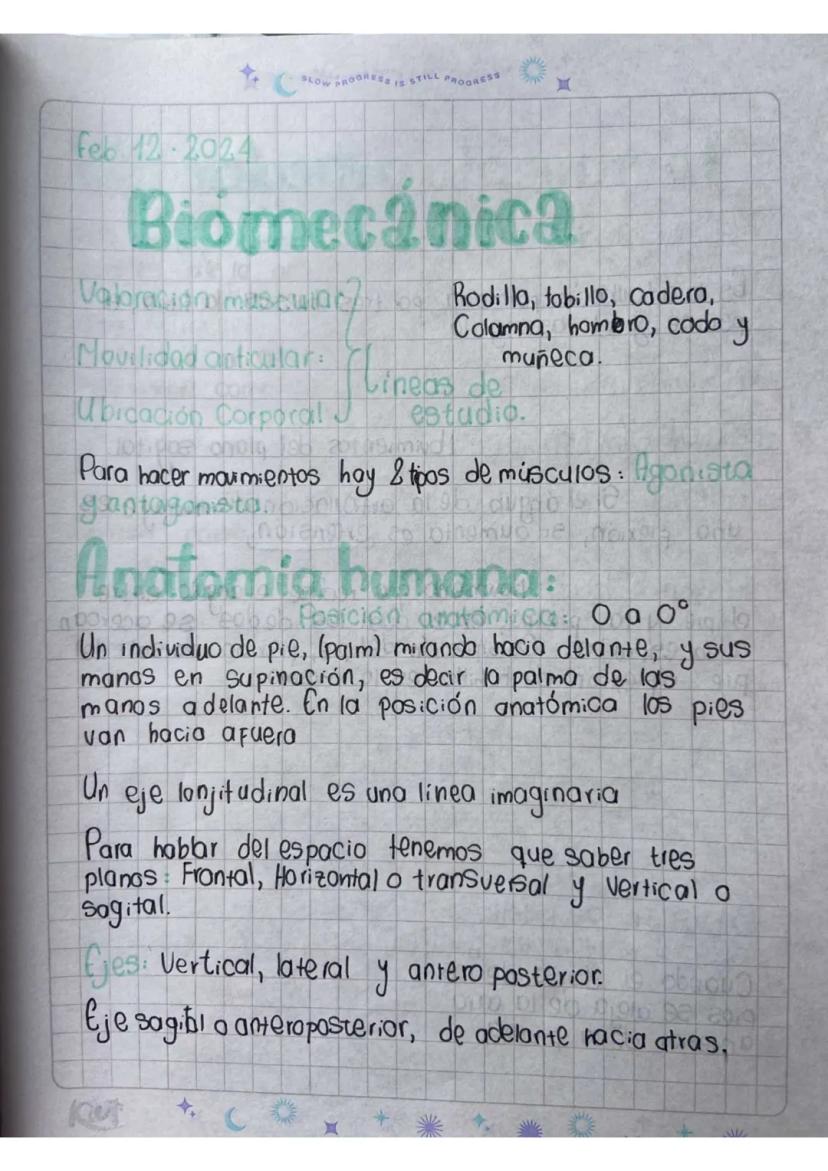 SLOW PROGRESS IS STILL PROGRESS
Feb 12 · 2024
Biomecánica
Valoración muscular
Rodilla, tobillo, cadera,
Columna, hombro, codo y
muñeca.
Movilidad articular:
Líneas de
Ubicación Corporal
estudio.
Para hacer movimientos hay 2 tipos de músculos: Agonista
y antagonista.
Anatomía humana:
Posición anatómica: 0 a 0°
Un individuo de pie, (palm) mirando hacia delante, y sus
manos en supinación, es decir la palma de las
manos adelante. En la posición anatómica los pies
van hacia afuera
Un eje lonjitudinal es una línea imaginaria
Para hablar del espacio tenemos que saber tres
planos: Frontal, Horizontal o transversal y vertical o
sagital.
Ejes: Vertical, lateral y antero posterior.
Eje sagital o anteroposterior, de adelante hacia atras.